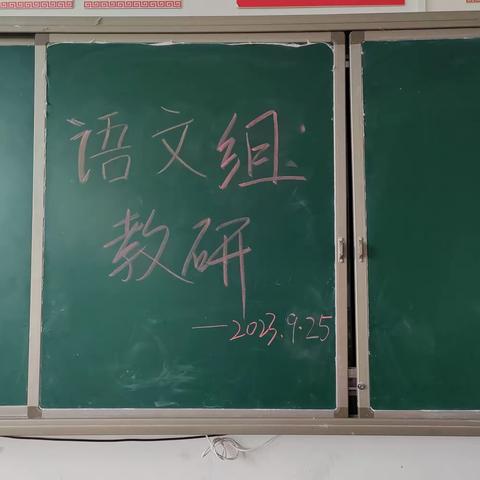 语文组
教研
—2023.9.25